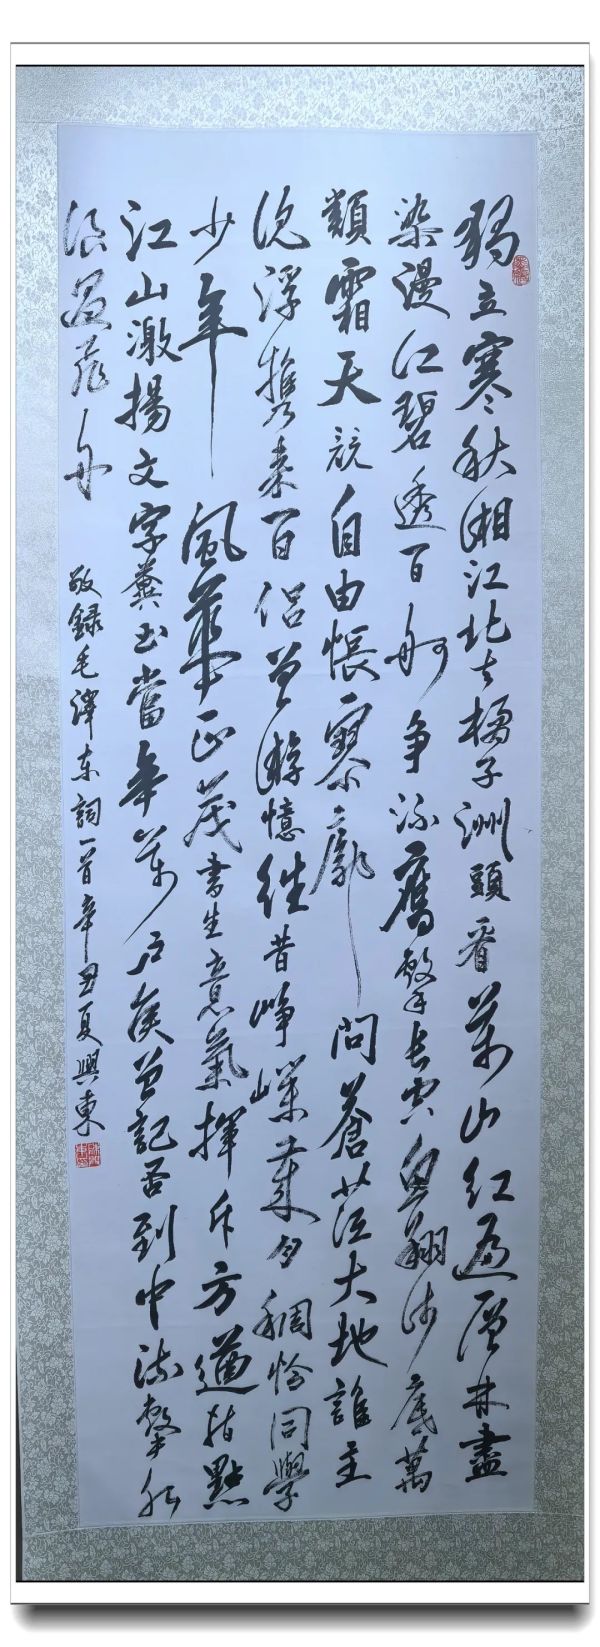 獨立寒秋湘江北去橘子洲頭看萬山紅遍層林盡
染漫江碧透百舸争流鷹擊長空魚翔淺底萬
類霜天競自由悵寥廓問蒼茫大地誰主
沉浮攜來百侣曾游憶往昔崢嶸歲月稠恰同學
少年風華正茂書生意氣揮斥方遒指點
江山激揚文字糞土當年萬户侯曾記否到中流擊水
浪遏飛舟
敬録毛澤东詞一首辛丑夏興東